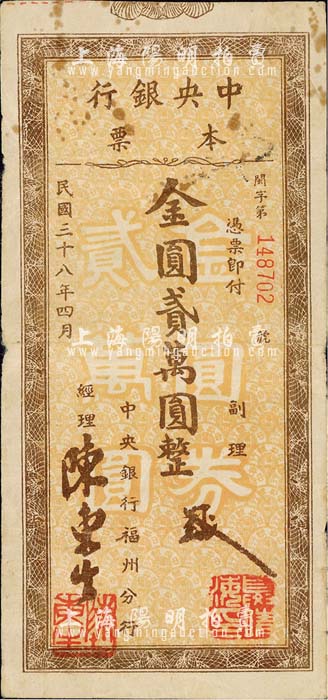 上海陽明拍賣
www.yangmingauction.com
中央銀行
本票
閩字第148702號
憑票即付
金圓貳萬圓整
副理
中央銀行福州分行
經理
民國三十八年四月
金圓券
貳萬圓
上海陽明拍賣
www.yangmingauction.com
上海陽明拍賣
www.yangmingauction.com